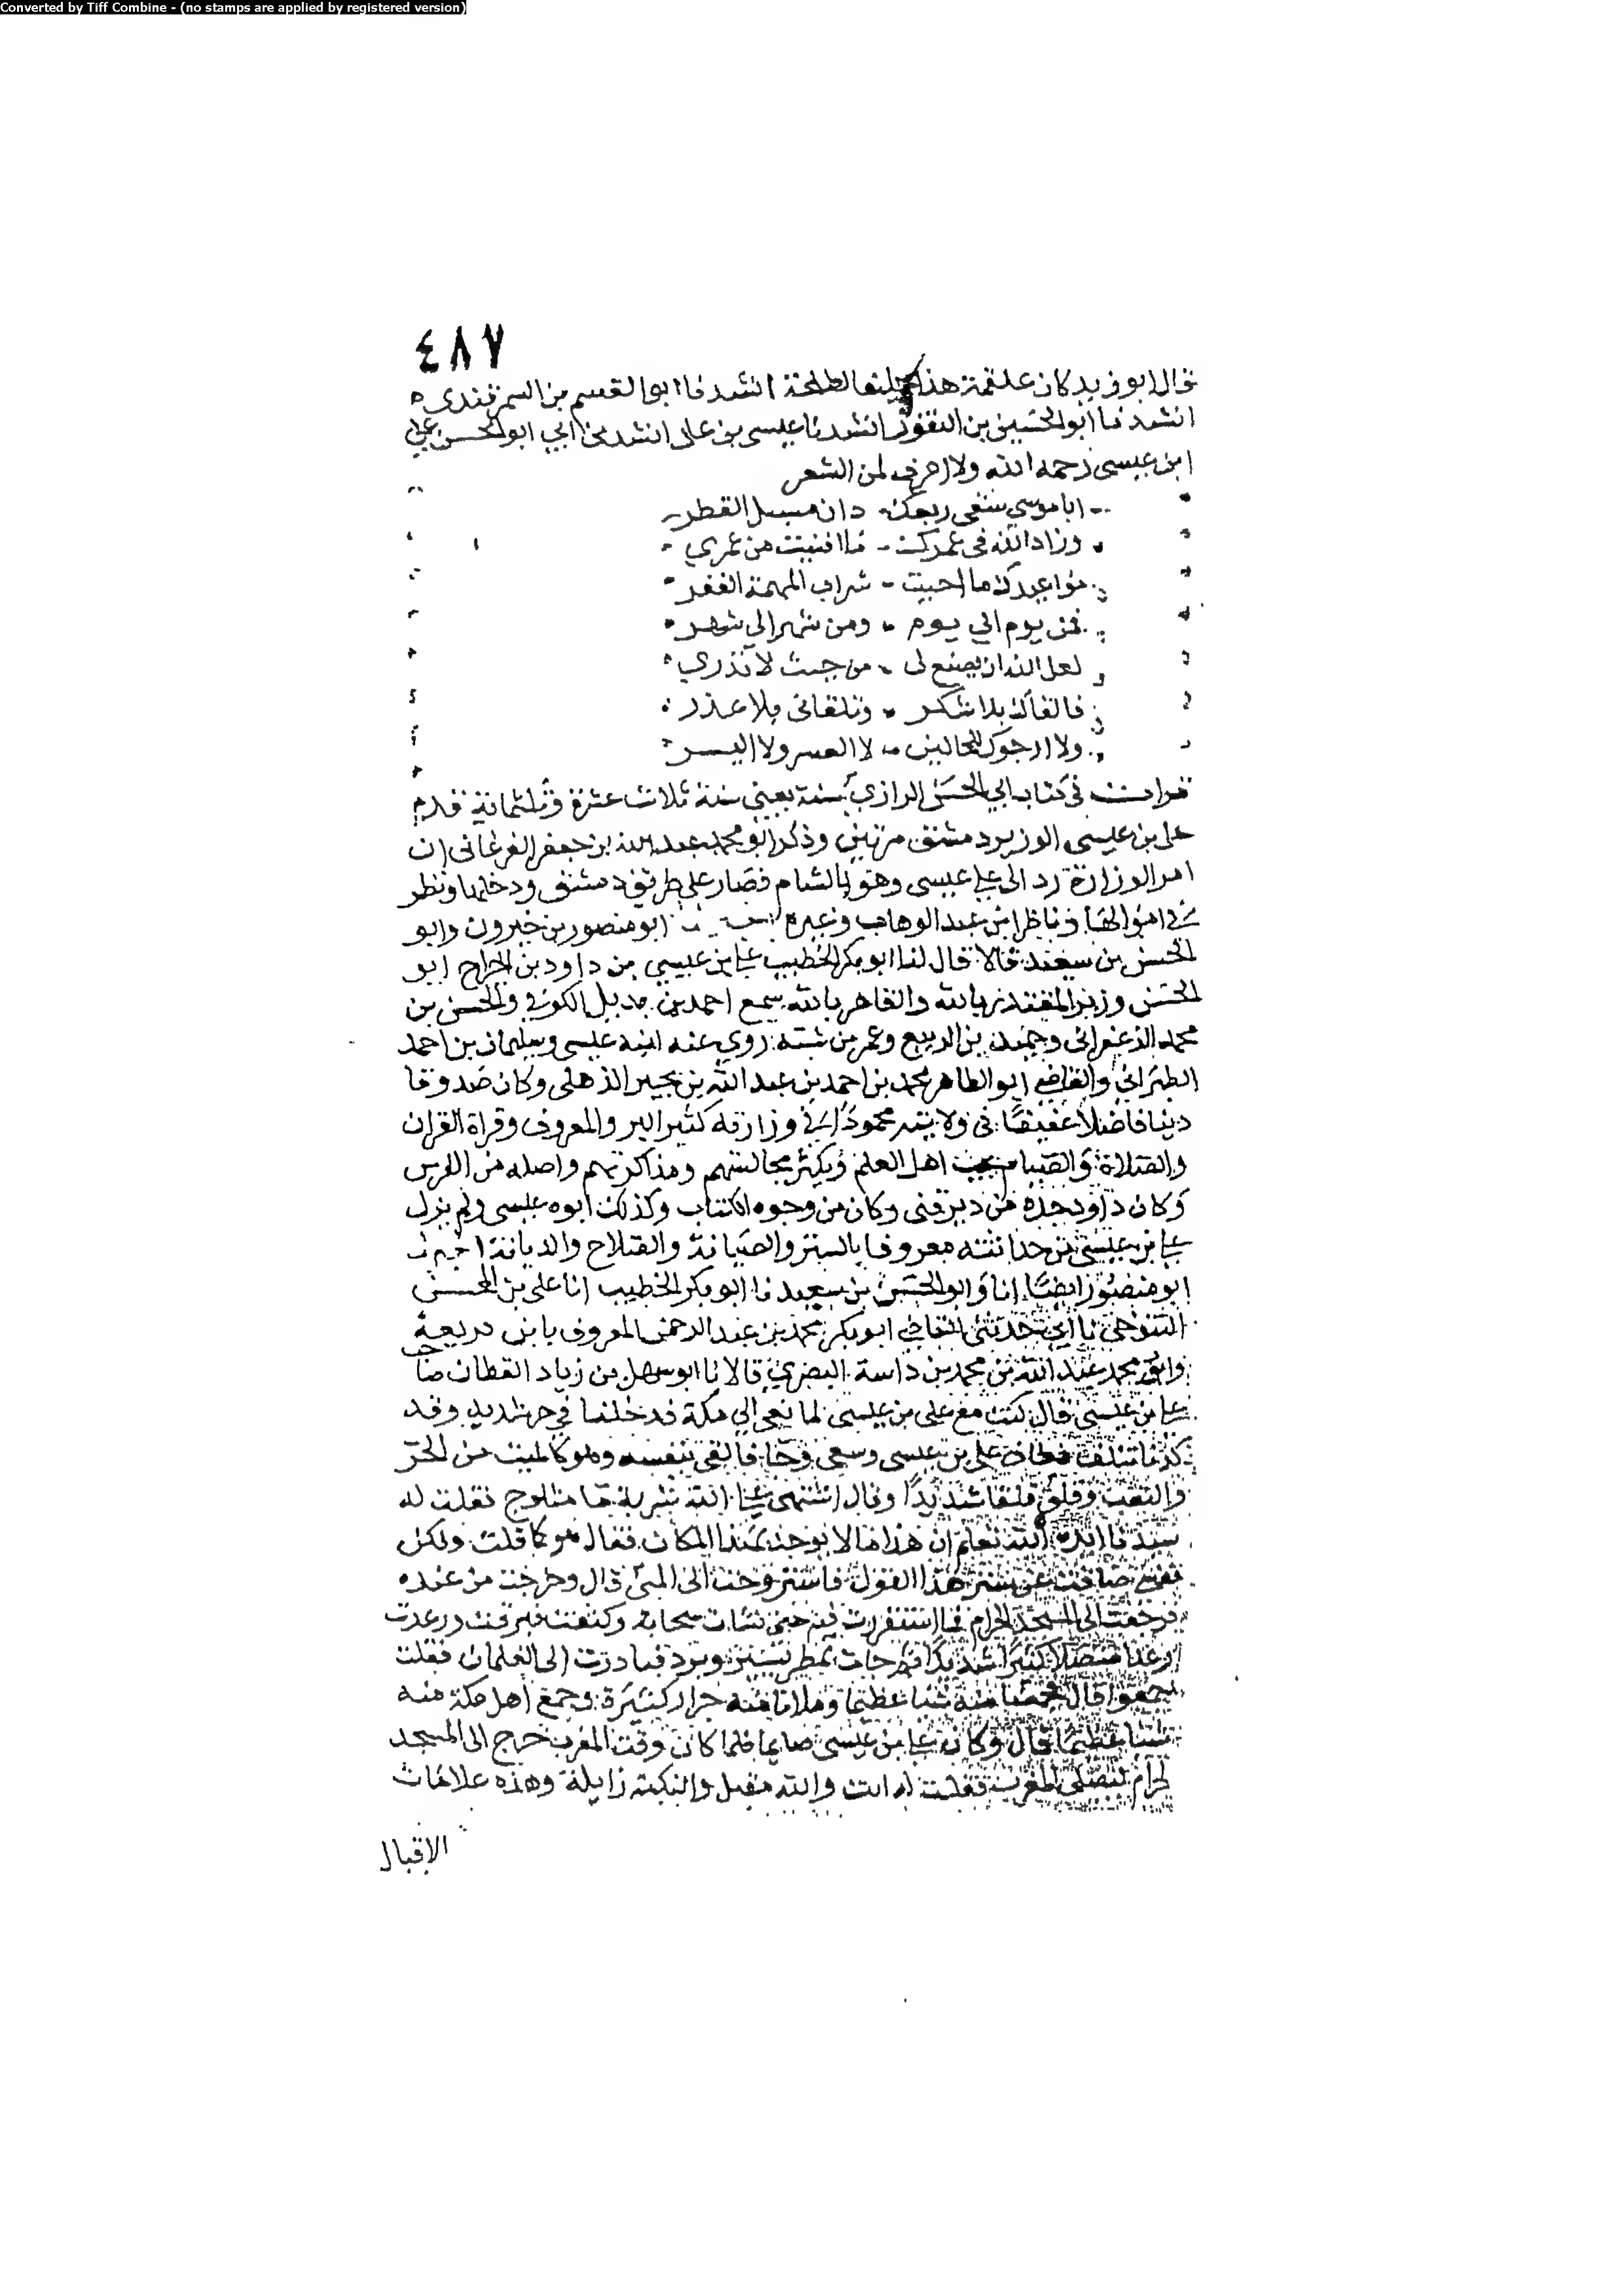 Converted by Tiff Combine - (no stamps are applied by registered version)
٤٨٧
قال ابو زيد كان علقمة هذا لطلحة انشدنا ابو القسم بن السمرقندي
انشدنا ابو الحسين بن النقور انشدنا عيسى بن علي انشدني ابي ابو الحسن علي
ابن عيسى رحمه الله ولا اعرف لمن الشعر
ابا موسى سقى ربعك دان مسبل القطر
وزاد الله في عمرك ما افنيت من عمري
مواعيدك ما احييت سراب المهمة القفر
فمن يوم الي يوم ومن شهر الى شهر
لعل الله ان يصنع لى من حيث لا تدري
فالقاك بلا شكر وتلقانى بلا عذر
ولا ارجوك للحالين لا العسر ولا اليسر
قرات في كتاب ابي الحسن الرازي سنة يعني سنة ثلاث عشرة وثلثمائة قدم
على بن عيسى الوزير دمشق مرتين وذكر ابو محمد عبد الله بن جعفر الفرغانى ان
امر الوزارة رد الى علي عيسى وهو بالشام فصار على طريق دمشق ودخلها ونظر
في اموالها وناظر ابن عبد الوهاب وغيره ابو منصور بن خيرون وابو
الحسن بن سعيد قالا قال لنا ابو بكر الخطيب علي بن عيسى بن داود بن الجراح ابو
الحسن وزير المقتدر بالله والقاهر بالله سمع احمد بن بديل الكوفي والحسن بن
محمد الزعفرانى وحميد بن الربيع وعمر بن شبه روى عنه ابنه عيسى وسليمان بن احمد
الطبراني والقاضي ابو الطاهر محمد بن احمد بن عبد الله بن بجير الذهلى وكان صدوقا
دينا فاضلا عفيفا فى ولايته محمودا في وزارته كثير البر والمعروف وقراة القران
والصلاة والصيام يحب اهل العلم ويكثر مجالستهم ومذاكرتهم واصله من الفرس
وكان داود جده من دير قنى وكان من وجوه الكتاب وكذلك ابوه عيسى ولم يزل
علي بن عيسى من حداثته معروفا بالستر والصيانة والصلاح والديانة
ابو منصور ايضا انا وابو الحسن بن سعيد نا ابو بكر الخطيب انا على بن المحسن
التنوخى نا ابي حدثنى القاضي ابو بكر محمد بن عبد الرحمن المعروف بابن قريعة
وابو محمد عبد الله بن محمد بن داسة البصري قالا نا ابو سهل بن زياد القطان صاحب
علي بن عيسى قال كنت مع على بن عيسى لما نفي الى مكة فدخلنا في حر شديد وقد
كدنا نتلف فطاف علي بن عيسى وسعى وجا فالقى بنفسه وهو كالميت من الحر
والتعب وقلق قلقا شديدا وقال اشتهى على الله شربة ما مثلوج فقلت له
سيدنا ايده الله تعلم ان هذا ما لا يوجد بهذا المكان فقال هو كما قلت ولكن
نفسي ضاقت عن ستر هذا القول فاستروحت الى المنى قال وخرجت من عنده
فرجعت الى المسجد الحرام فما استقررت فيه حتى نشات سحابة وكثفت فبرقت ورعدت
رعدا متصلا كثيرا شديدا ثم جات بمطر يسير وبرد فبادرت الى الغلمان فقلت
اجمعوا قال فجمعنا منه شيا عظيما وملانا منه جرار كثيرة وجمع اهل مكة منه
شيئا عظيما قال وكان علي بن عيسى صايما فلما كان وقت المغرب خرج الى المسجد
الحرام ليصلى المغرب فقلت له انت والله مقبل والنكبة زايلة وهذه علامات
الاقبال